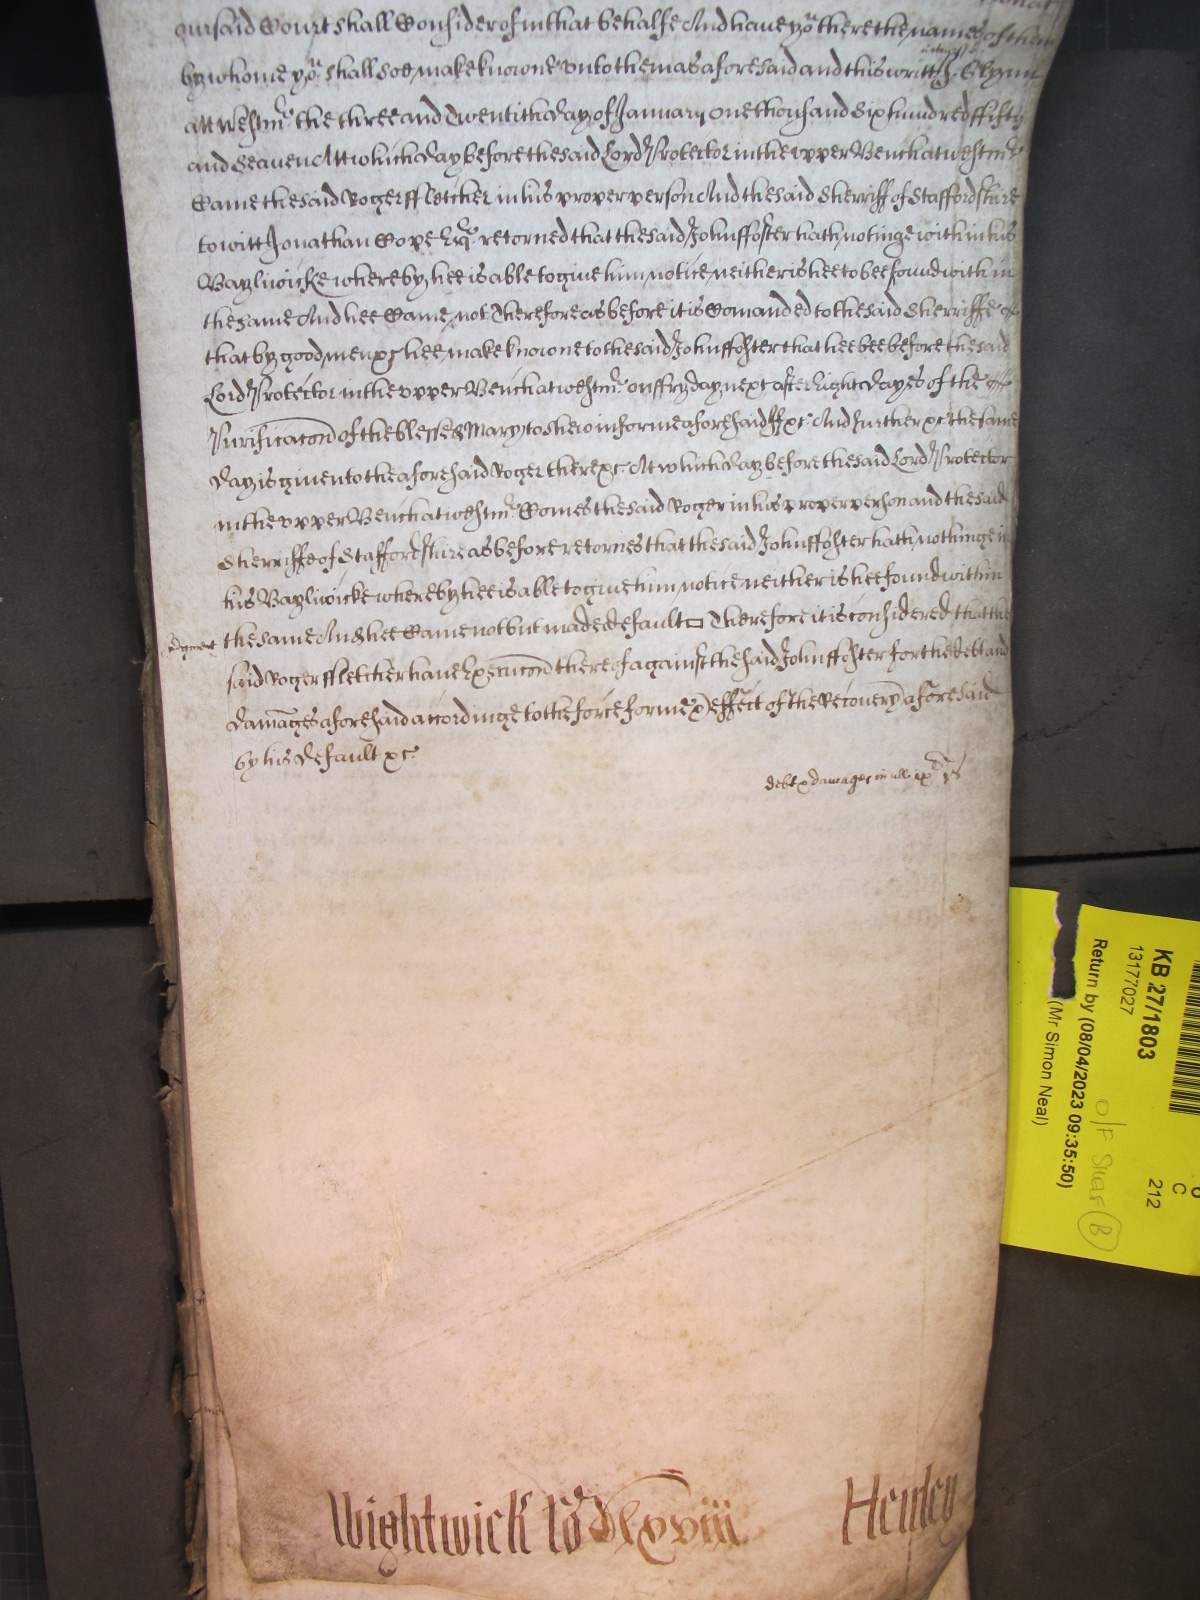 our said Court shall Consider of in that behalfe And haue yoᵘ there the names of them
by whome yoᵘ shall soe make knowne vnto them as aforesaid and this writt witnes J. Glynn
att Westmʳ the three and Twentith day of January one thousand Six hundred ffifty
and Seauen Att which day before the said Lord Protector in the vpper Bench at westmʳ
Came the said Roger ffletcher in his proper person And the said Sherriff of Staffordshire
to witt Jonathan Cope Esqʳ retorned that the said John ffoster hath notinge within his
Bayliwicke whereby hee is able to giue him notice neither is hee to bee found with in
the same And hee Came not Therefore as before it is Comanded to the said Sherriffe
that by good men xc hee make knowne to the said John ffoster that hee bee before the said
Lord Protector in the vpper Bench at westmʳ on ffryday next after Eight dayes of the
Purificacon of the blessed Mary to shew in forme aforesaid if xc And further xc the same
day is giuen to the aforesaid Roger there xc At which day before the said Lord Protector
in the vpper Bench at westmʳ Comes the said Roger in his proper person and the said
Sherriffe of Staffordshire as before retornes that the said John ffoster hath nothinge in
his Bayliwicke whereby hee is able to giue him notice neither is hee found within
the same And hee Came not but made default Therefore it is considered that the
said Roger ffletcher haue Execucon thereof against the said John ffoster for the debt and
damages aforesaid accordinge to the force forme x effect of the Recouery aforesaid
by his default xc
debt x damages in all ixˡ
Wightwick Ro dlxviii Henley
KB 27/1803
13177027
Return by (08/04/2023 09:35:50)
(Mr Simon Neal)
O/F Shaf B
C
212